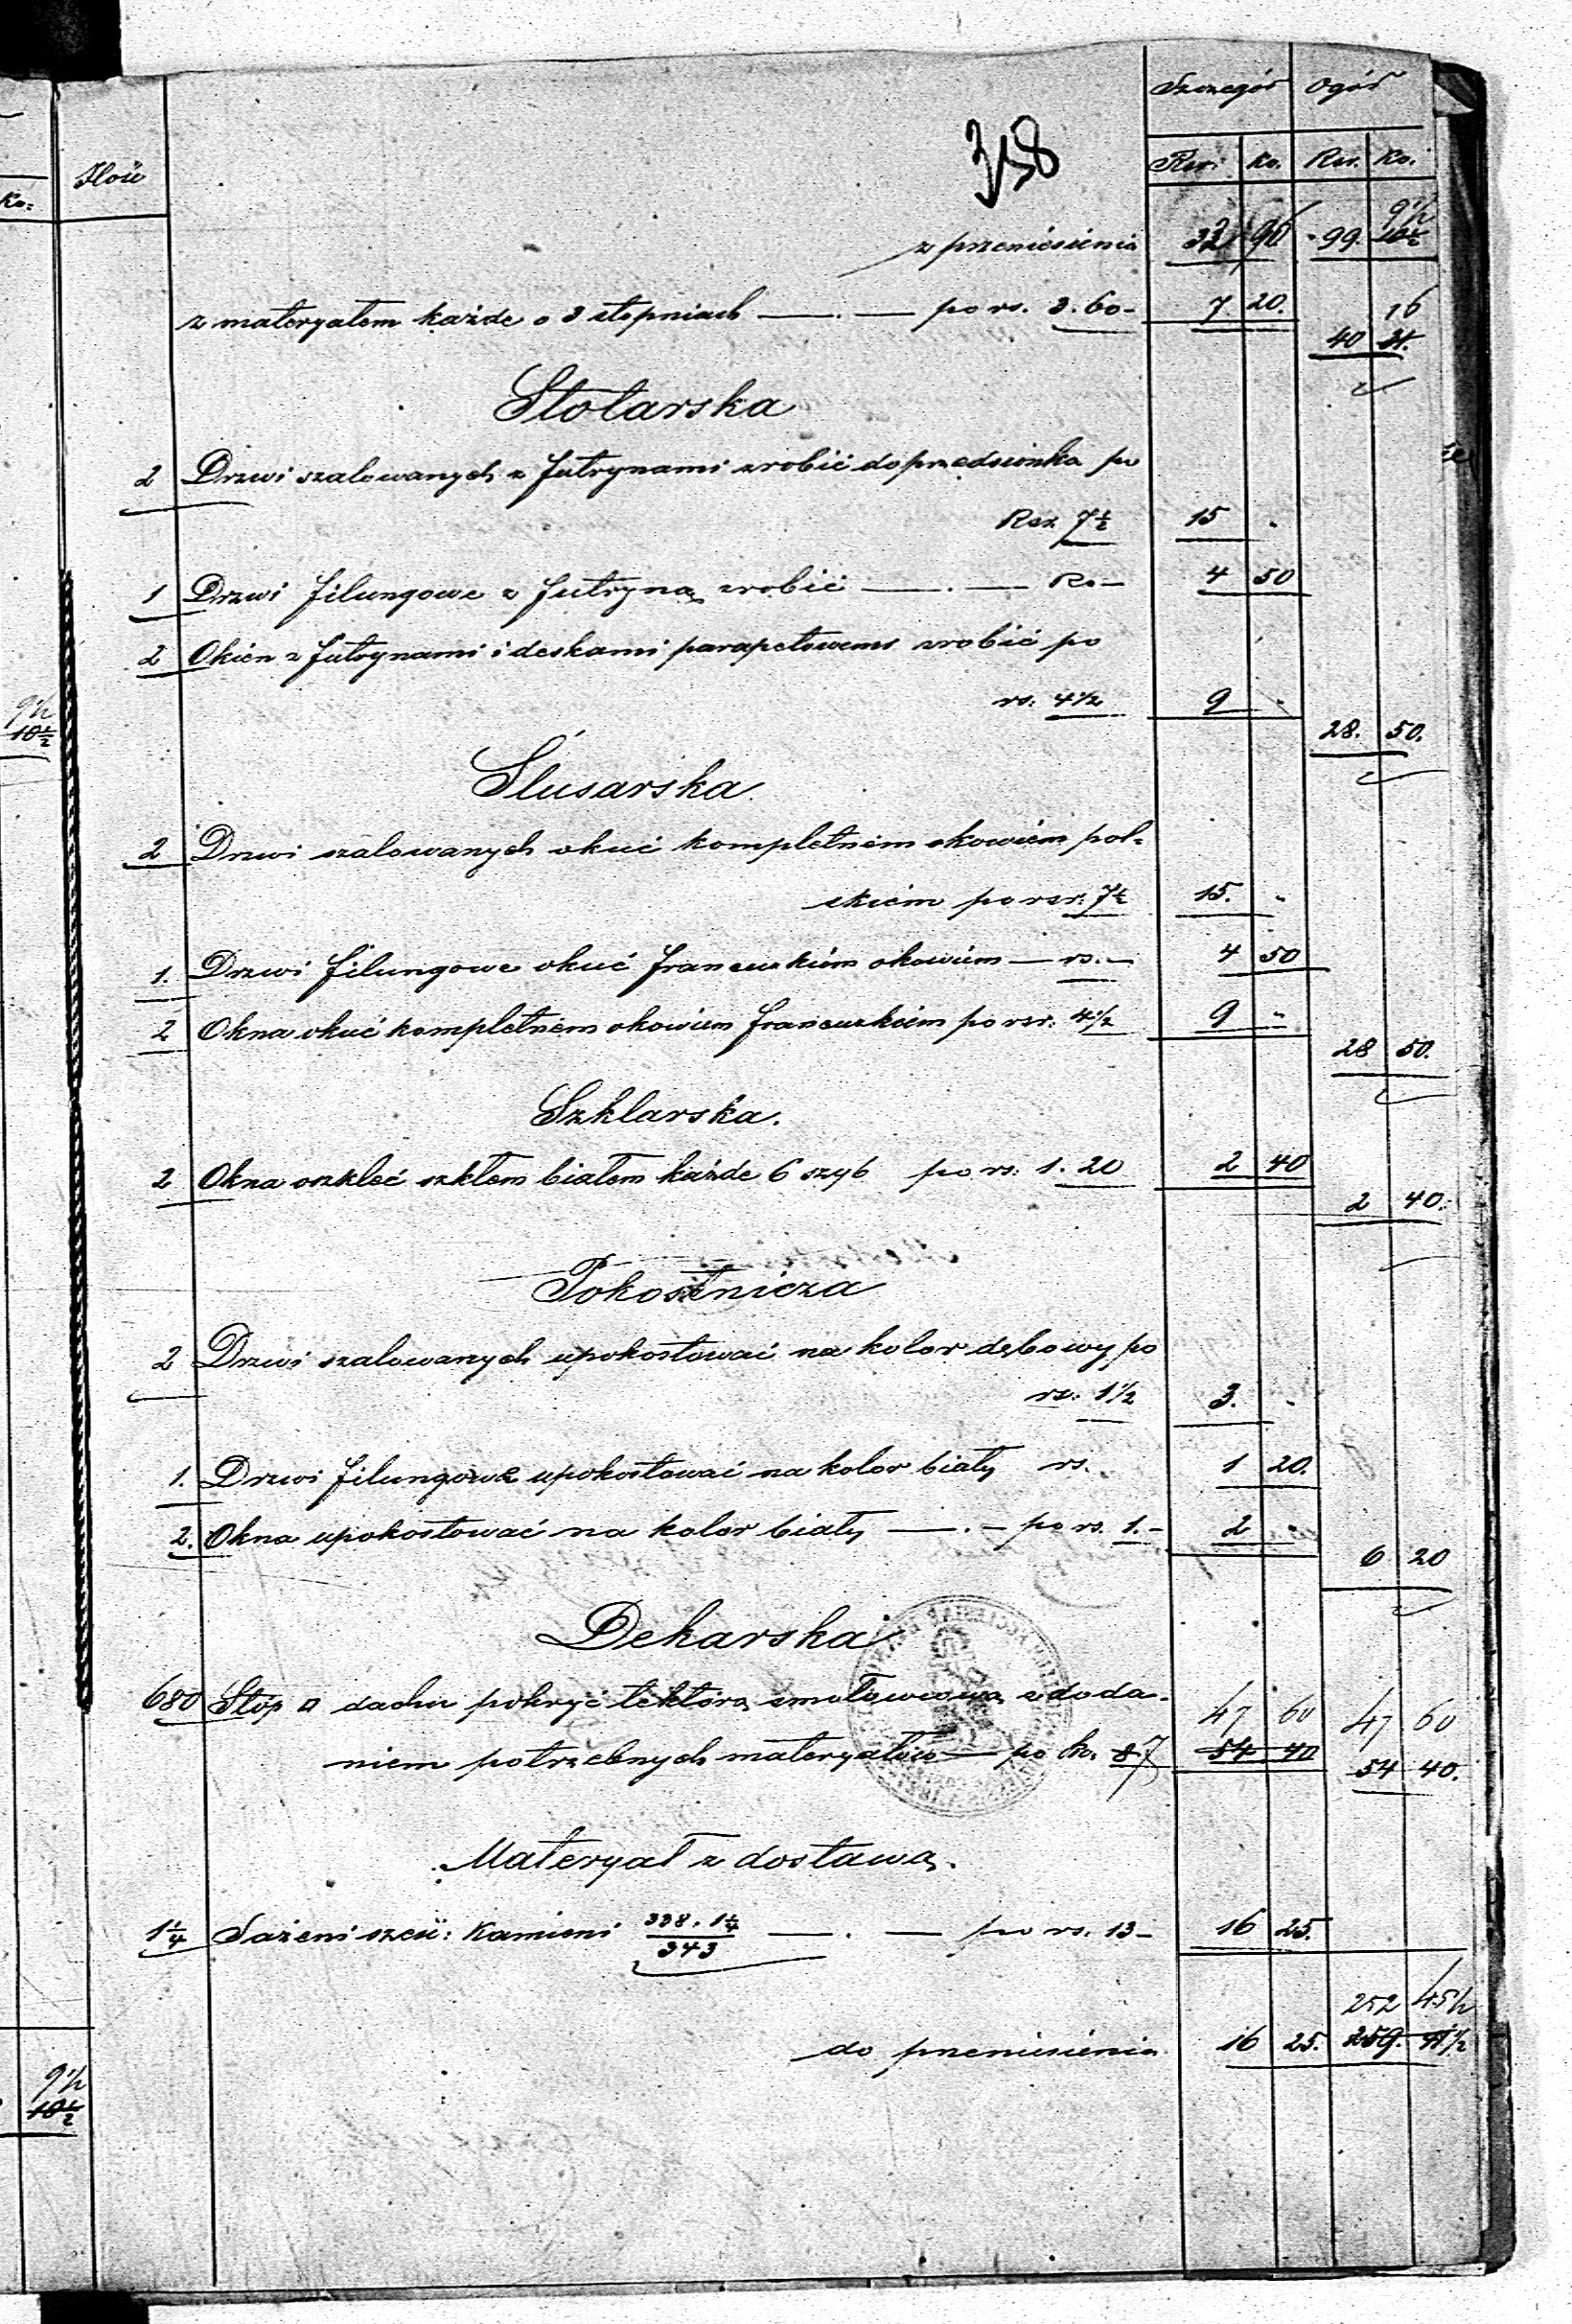 Szczegół Ogół
Ilość Rsr. Ko. Rsr. Ko.
Ko.
358
9 1/2
z przeniesienia 32 96 99. 10 1/2
z materyałem każde o 3 stopniach — . — po rs. 3. 60 - 7 20.
16
40 31.
Stolarska
2 Drzwi szalowanych z futrynami zrobić do przedsionka po
Rsr. 7 1/2 15 "
1 Drzwi filungowe z futryną zrobić — . — Rs - 4 50
2 Okien z futrynami i deskami parapetowemi zrobić po
rs. 4 1/2 9 "
28. 50.
9 1/2
10 1/2
Ślusarska
2 Drzwi szalowanych okuć kompletnem okowiem pol-
skiem po rsr. 7 1/2 15. "
1. Drzwi filungowe okuć francuzkiem okowiem — rs. - 4 50
2 Okna okuć kompletnem okowiem francuzkiem po rsr. 4 1/2 9 "
28 50.
Szklarska.
2 Okna oszklić szkłem białem każde 6 szyb po rs. 1. 20 2 40
2 40.
Pokostnicza
2 Drzwi szalowanych upokostować na kolor dębowy po
rs. 1 1/2 3. "
1. Drzwi filungowe upokostować na kolor biały rs. 1 20.
2. Okna upokostować na kolor biały — . — po rs. 1. - 2 "
6 20
Dekarska
680 Stóp □ dachu pokryć tekturą smołowcową z doda- 47 60 47 60
niem potrzebnych materyałów — po ko. 8 7 54 40 54 40.
Materyał z dostawą.
1 1/4 Sążeni sześć: Kamieni 338. 1 1/4 / 343 — . — po rs. 13 - 16 25.
252 45 1/2
do przeniesienia 16 25. 259. 41 1/2
9 1/2
10 1/2